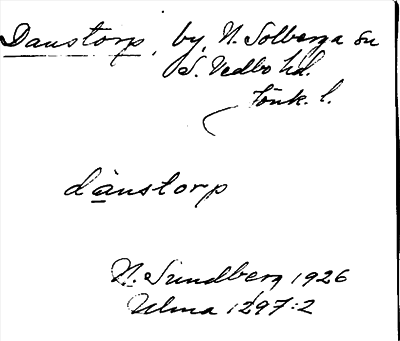 Danstorp, by, N. Solberga sn
S. Vedbo hd.
Jönk. l.
dànstorp
N. Sundberg 1926
Ulma 1297:2